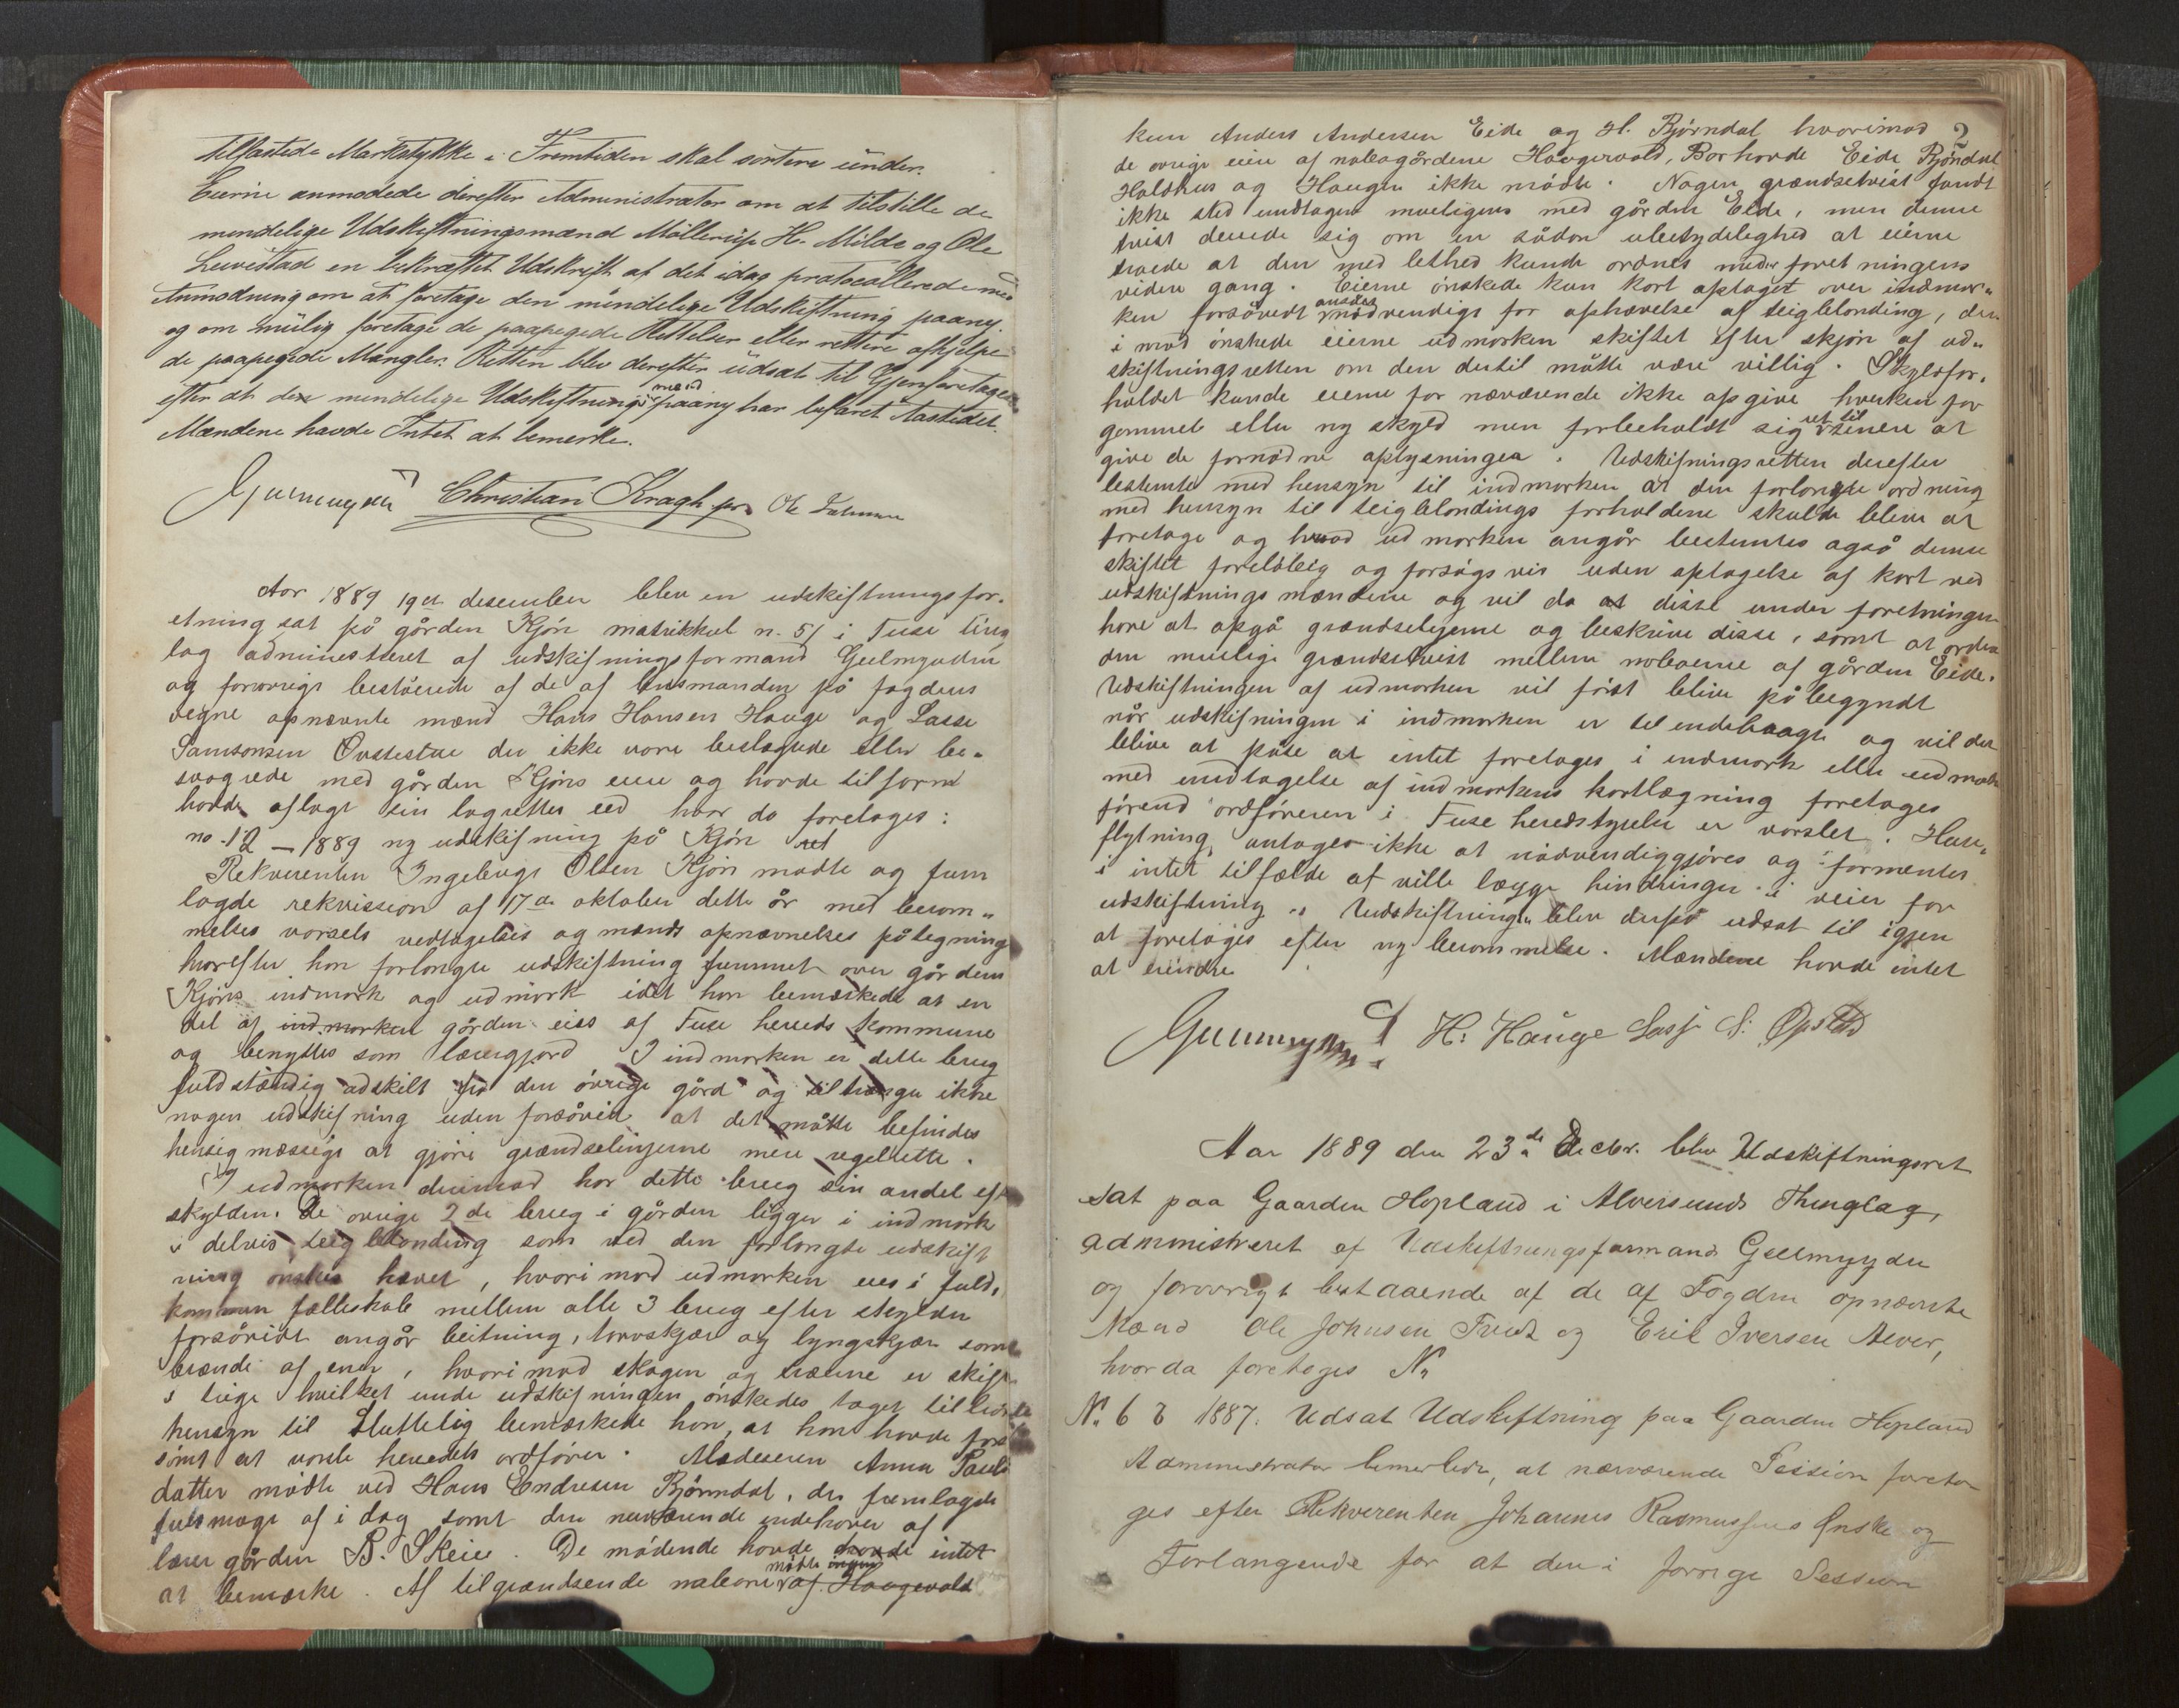 tilstødte Markstykke i Fremtiden skal sortere under.
Eierne anmodede derefter Administrator om at tilstille de
mindelige Udskiftningsmænd Møllerup H. Milde og Ole
en bekræftet Udskrift af det idag protocollerede med
Anmodning om at foretage den mindelige Udskiftning paany
og om mulig foretage de paapegede Rettelser eller rettere afhjelpe
de paapegede Mangler. Retten blev derefter udsat til Gjenforetagelse
efter at de mindelige Udskiftningsmænd paany har befaret Aastedet.
Mændene havde Intet at bemerke.
Geelmuyden Christian Kragh Ole
Aar 1889 19de desember blev en udskiftningsfor-
etning sat på gården Kjón matrikkul n. 51 i Fuse ting
lag administreret af udskifningsformand Geelmuyden
og forøvrigt beståerede af de af lensmanden på fogdens
vegne opnævnte mænd Hans Hansen Hauge og Lasse
Samsonsen der ikke vare beslægtede eller be-
svogrede med gården Kjóns eiere og havde tilforn
havde aflagt sin lagrettes eed hvor da foretages:
no. 12 - 1889 ny udskifning på Kjón
Rekvirenten Ingeborg Olsen Kjón mødte og frem
lagde rekvission af 17de oktober dette år med berom-
melses varsels vedtagelses og mænds opnævnelses påtegning
hvorefter hon forlangte udskiftning fremmet over gårdens
Kjóns indmark og udmark idet hon bemærkede at en
del af indmarken gården eies af Fuse hereds kommune
og benyttes som lærergård I indmarken er dette brug
fuldstændig adskilt fra den óvrige gård og tiltrænger ikke
nogen udskifning uden forsåvidt at det måtte befindes
hensigmæssigt at gjóre grændselinjerne mere regelrette.
I udmarken derimod har dette brug sin andel efter
skylden. De ovrige 2de brug i gården ligger i indmark
i delvis teigblonding som ved den forlangte udskift
ning ónskes hævet, hvorimod udmarken eies i fuld-
kommen fælleskab mellem alle 3 brug efter skylden
forsåvidt angår beitning, torvskjær og lyngskjær samt
brænde af ener, hvorimod skogen og træerne er skiftet
i teige hvilket under udskifningen ónskedes taget tilbørlig
hensyn til Sluttelig bemærkede hon, at hon havde for-
sómt at varsle heredets ordfórer. Mødeseren Anna Pauls
datter módte ved Hans Endresen Bjórndal, der fremlagde
fuldmagt af i dag samt den nuværende indehaver af
lærer gården B. Skeie. De módende havde havde intet
at bemærke. Af tilgrændsende naboer módte ingen af Haugevald
2
kun Anders Andersen Eide og H. Bjórndal hvorimod
de ovrige eiere af nabogårdene Haugervold, Barhovde Eide Bjórndal
Holdhus og Haugen ikke módte. Nogen grændsetvist fandt
ikke sted undtagen mueligens med gården Eide, men denne
tvist dreiede sig om en sådan ubetydelighed at eierne
troede at den med lethed kunde ordnes under foretningens
videre gang. Eierne ónskede kun kort optaget over indmar-
ken forsåvidt ansees nódvendigt for ophævelse af teigblonding, der-
i mod ónskede eierne udmarken skiftet efter skjón af ud-
skiftningsretten om den dertil måtte være villig. Skyldfor-
holdet kunde eierne for nærværende ikke opgive hverken for
gammel eller ny skyld men forbeholdt sig ret til senere at
give de fornødne oplysninger. Udskifningsretten derefter
bestemte med hensyn til indmarken at den forlangte ordning
med hensyn til teigblondings forholdene skulde blive at
foretage og hvad udmarken angår bestemtes også denne
skiftet foreløbig og forsøgsvis uden optagelse af kort ved
udskiftningsmændene og vil da at disse under foretningen
have at opgå grændselinjerne og beskrive disse, samt at ordne
den muelige grændsetvist mellem naboerne af gården Eide.
Udskiftningen af udmarken vil fórst blive påbegyndt
når udskifningen i indmarken er tilendebragt og vil der
blive at påse at intet foretages i indmark eller udmark
med undtagelse af indmarkens kortlægning foretages
fórend ordfóreren i Fuse heredstyrelse er varslet. Huse-
flytning antages ikke at nódvendiggjóres og formentes
i intet tilfælde at ville lægge hindringer i veien for
udskiftning. Udskiftningen blev derpå udsat til igjen
at foretages efter ny berommelse. Mændene havde intet
at erindre
Geelmuyden H. Hauge Lasse S:
Aar 1889 den 23de Decbr. blev Udskiftningsret
sat paa Gaarden Hopland i Alversunds Thinglag,
administreret af Udskiftningsformand Geelmuyden
og forøvrigt bestaaende af de af Fogden opnævnte
Mænd Ole Johnsen Tveit og Erik Iversen Alver,
hvor da foretoges No
No. 6 1887. Udsat Udskiftning paa Gaarden Hopland
Administrator bemerkede, at nærværende Session foreta
ges efter Rekverenten Johannes Rasmussens Ønske og
Forlangende for at den i forrige Session